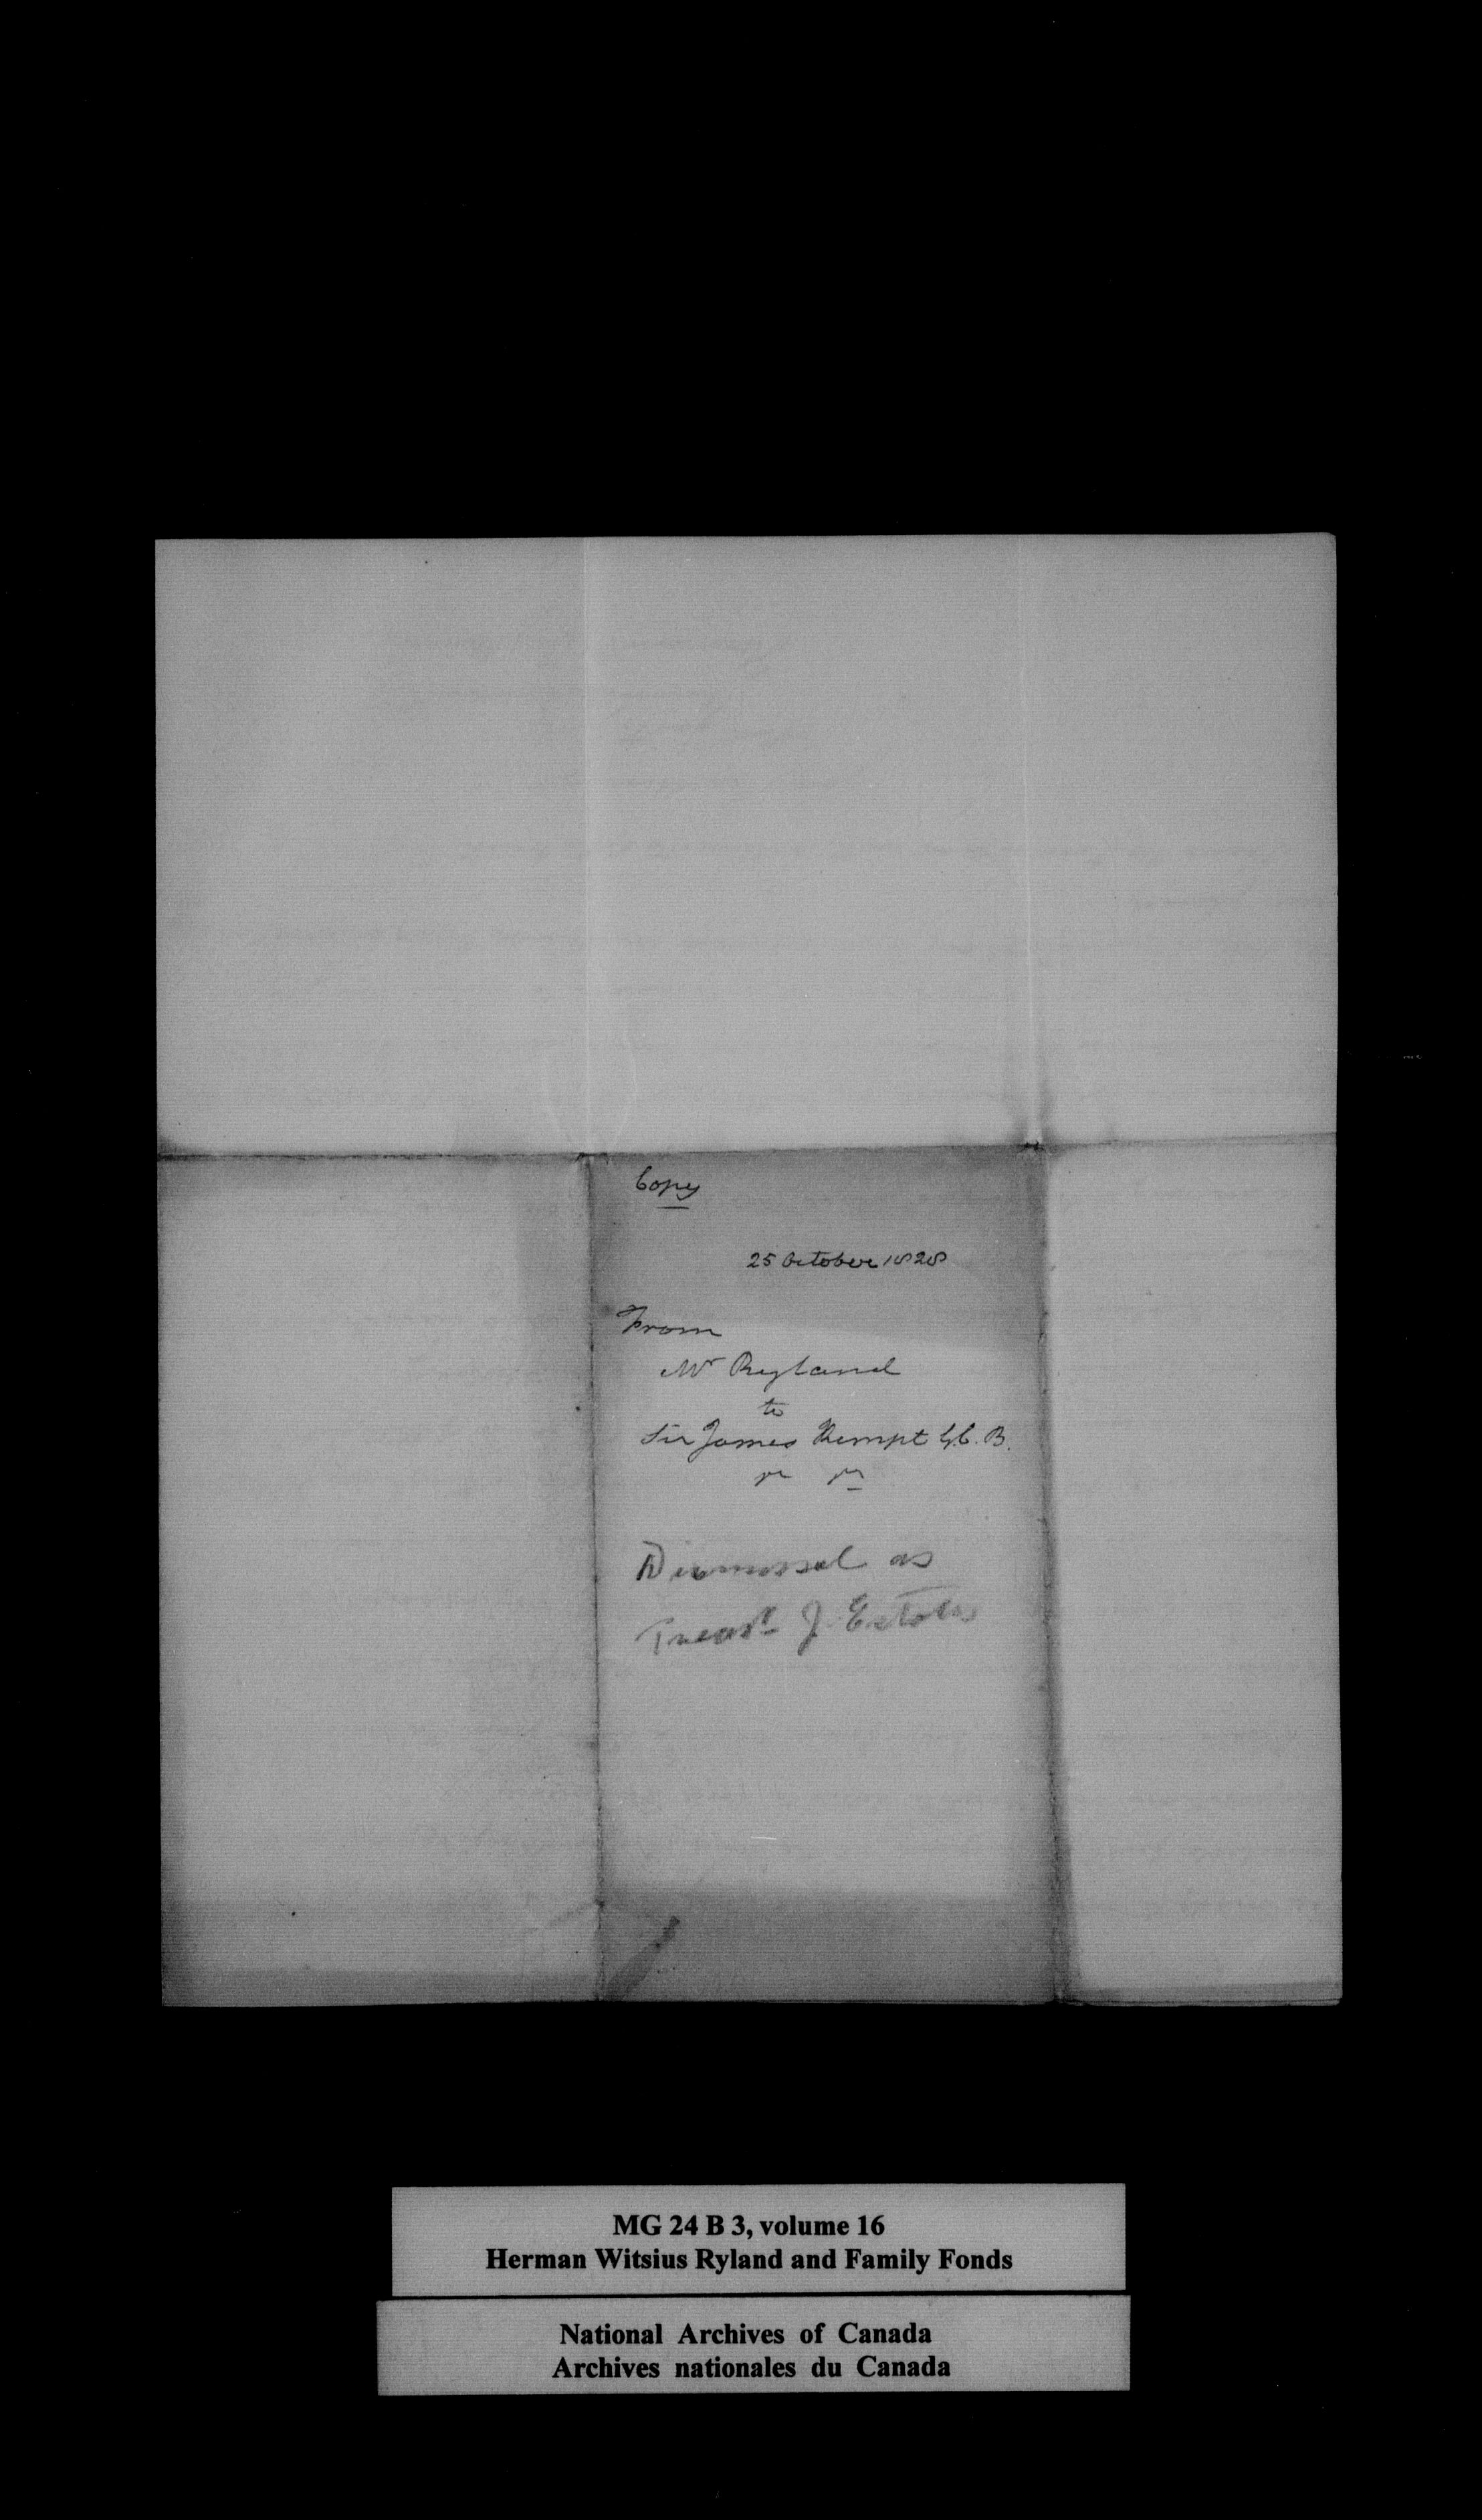 Copy
25 October 1828
From
Mr Ryland
to
Sir James Kempt G.C.B.
Dismissal as
Treasr J. Estates
MG 24 B 3, volume 16
Herman Witsius Ryland and Family Fonds
National Archives of Canada
Archives nationales du Canada